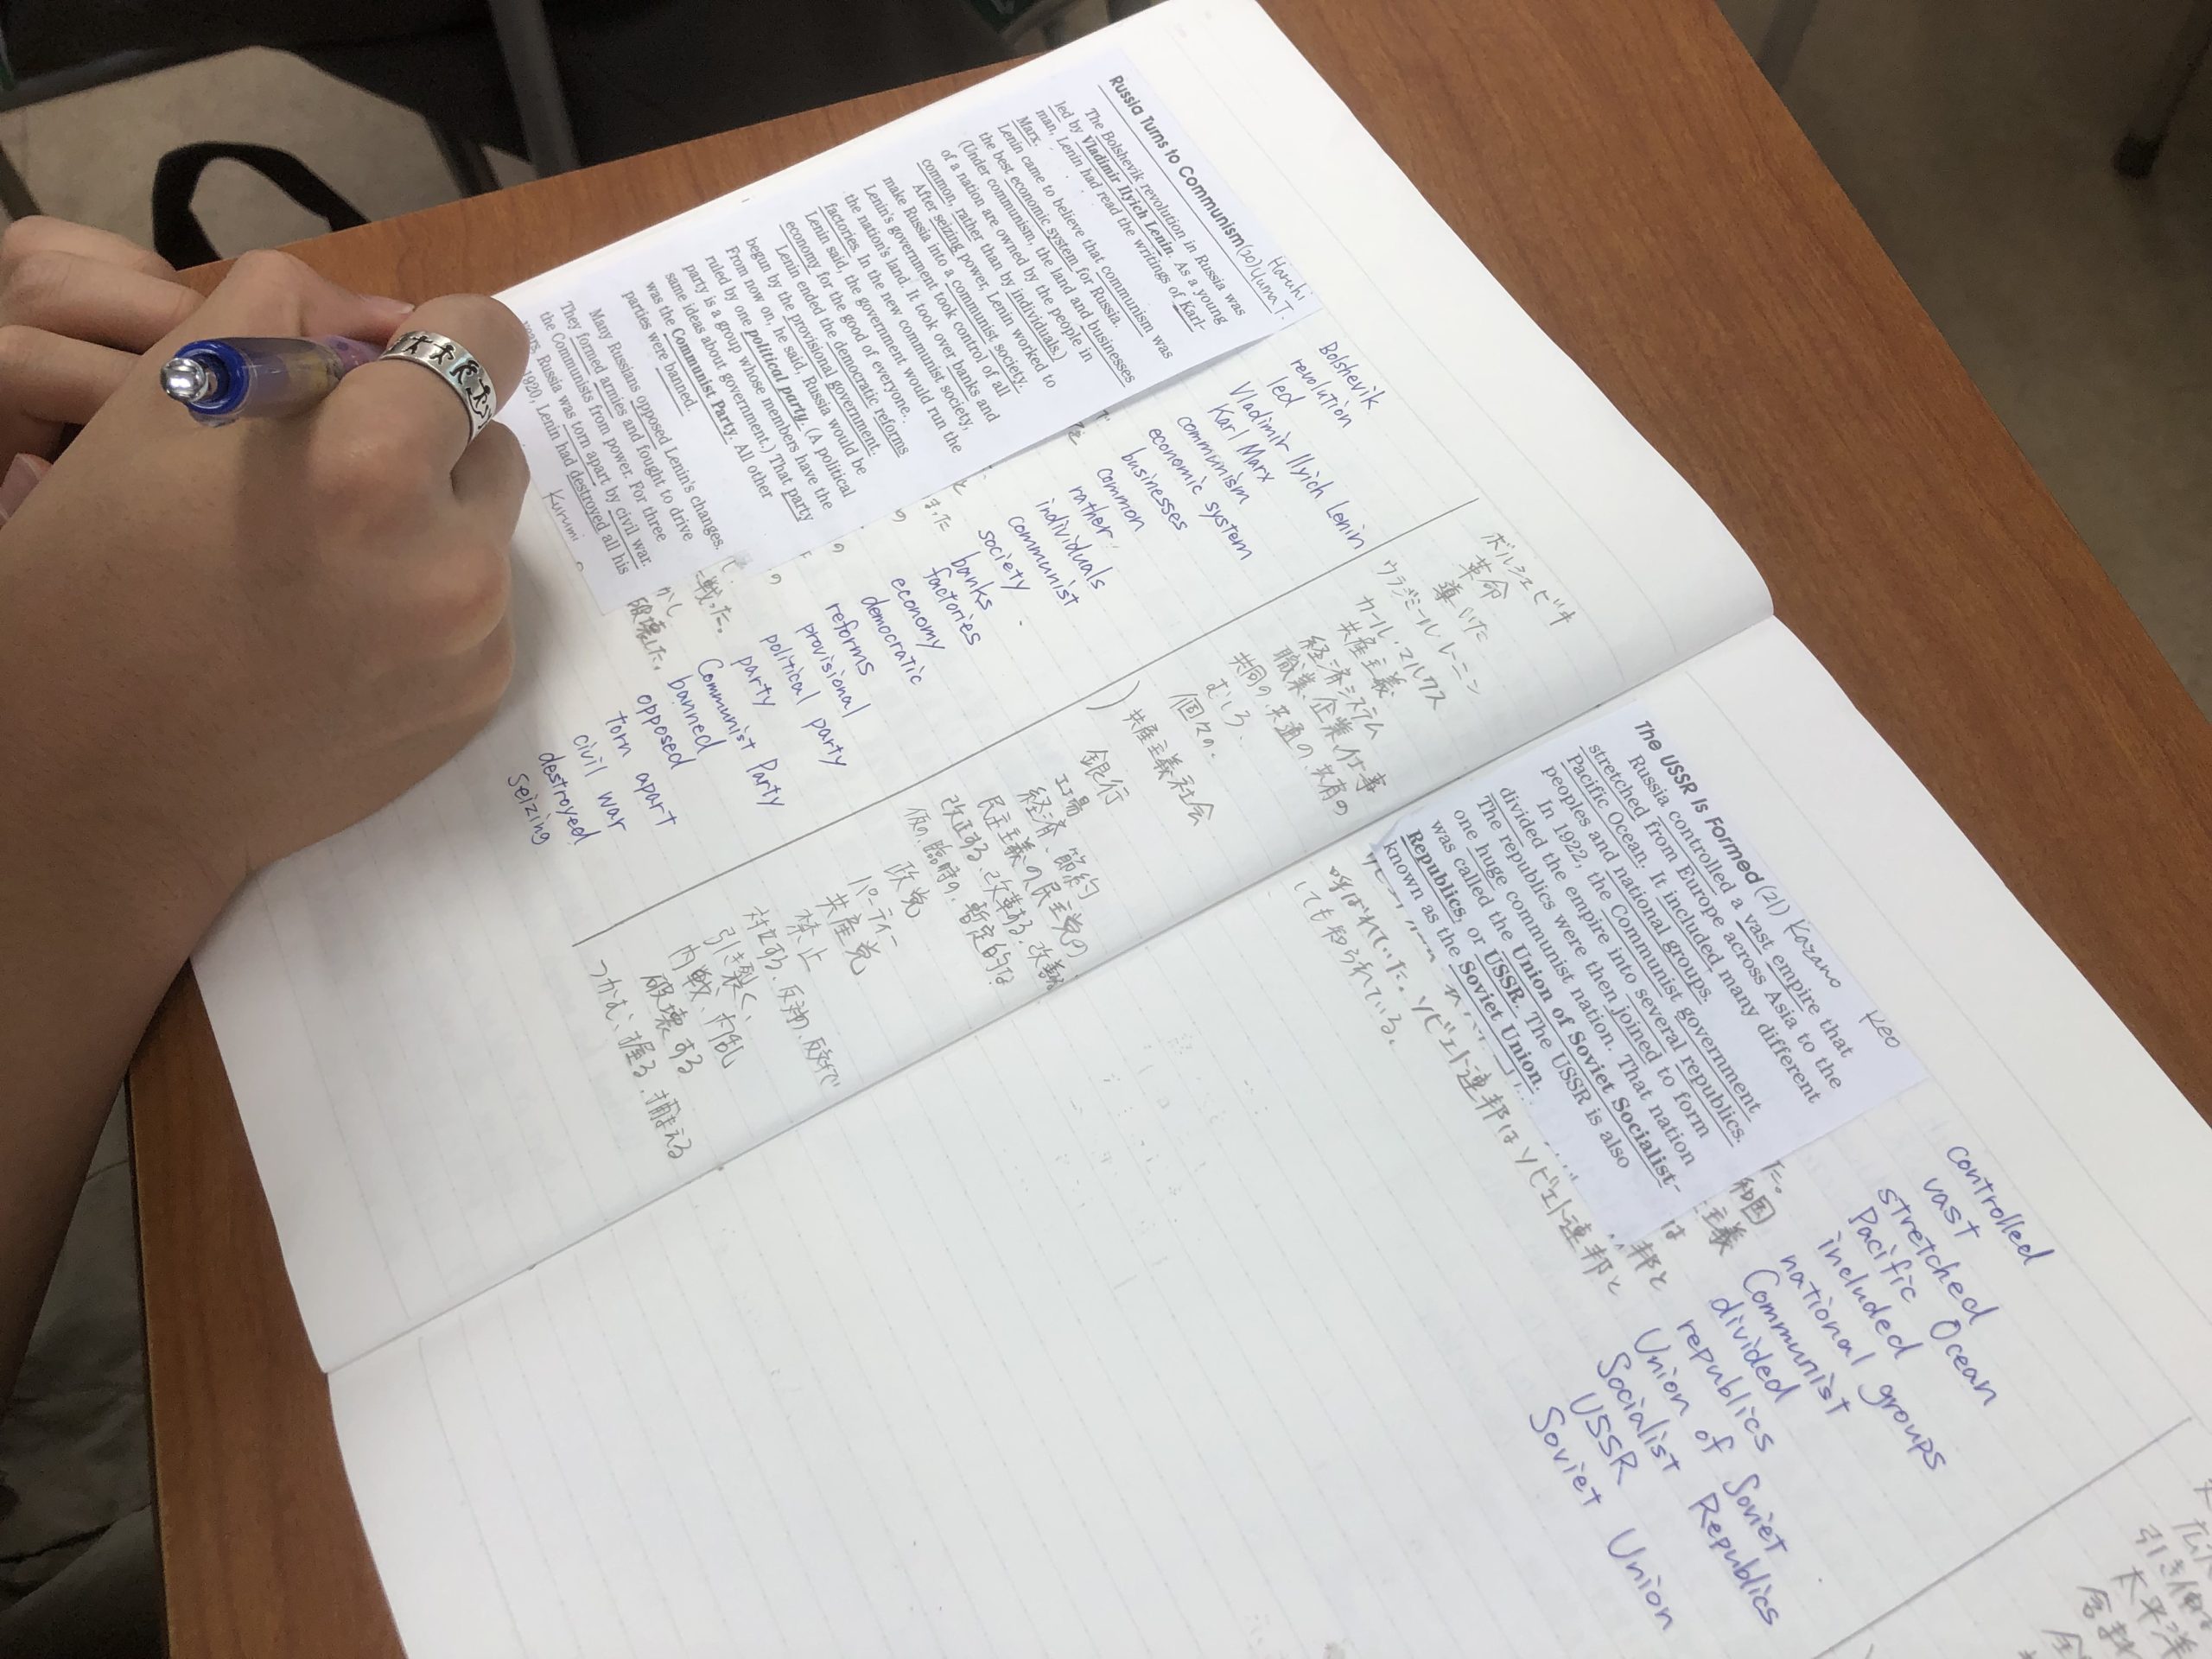 Russia Turns to Communism (20) Yuma T.
Haruhi
The Bolshevik revolution in Russia was
led by Vladimir Ilyich Lenin. As a young
man, Lenin had read the writings of Karl
Marx.
Lenin came to believe that communism was
the best economic system for Russia.
(Under communism, the land and businesses
of a nation are owned by the people in
common, rather than by individuals.)
After seizing power, Lenin worked to
make Russia into a communist society.
Lenin's government took control of all
the nation's land. It took over banks and
factories. In the new communist society,
Lenin said, the government would run the
economy for the good of everyone.
Lenin ended the democratic reforms
begun by the provisional government.
From now on, he said, Russia would be
ruled by one political party. (A political
party is a group whose members have the
same ideas about government.) That party
was the Communist Party. All other
parties were banned.
Many Russians opposed Lenin's changes.
They formed armies and fought to drive
the Communists from power. For three
years, Russia was torn apart by civil war.
1920, Lenin had destroyed all his
Kurumi
Bolshevik
revolution
led
Vladimir Ilyich Lenin
Karl Marx
communism
economic system
businesses
common
rather
individuals
communist
society
banks
factories
economy
democratic
reforms
provisional
political party
party
Communist Party
banned
opposed
torn apart
civil war
destroyed
Seizing
ボルシェビキ
革命
導いた
ウラジミール・レーニン
カール・マルクス
共産主義
経済システム
職業、企業、仕事
共同の、共通の、共有の
むしろ、
個々の、
共産主義社会
銀行
工場
経済、節約
民主主義の、民主党の
改正する、改革する、改善
仮の、臨時の、暫定的な
政党
パーティー
共産党
禁止
対立する、反対、反対で
引き裂く、
内戦、内乱
破壊する
つかむ、握る、捕まえる
戦った。
破壊した。
The USSR Is Formed (21) Kazano
Reo
Russia controlled a vast empire that
stretched from Europe across Asia to the
Pacific Ocean. It included many different
peoples and national groups.
In 1922, the Communist government
divided the empire into several republics.
The republics were then joined to form
one huge communist nation. That nation
was called the Union of Soviet Socialist
Republics, or USSR. The USSR is also
known as the Soviet Union.
呼ばれていた。ソビエト連邦はソビエト連邦と
しても知られている。
controlled
vast
stretched
Pacific Ocean
included
national groups
Communist
divided
republics
Union of Soviet
Socialist Republics
USSR
Soviet Union
太平洋